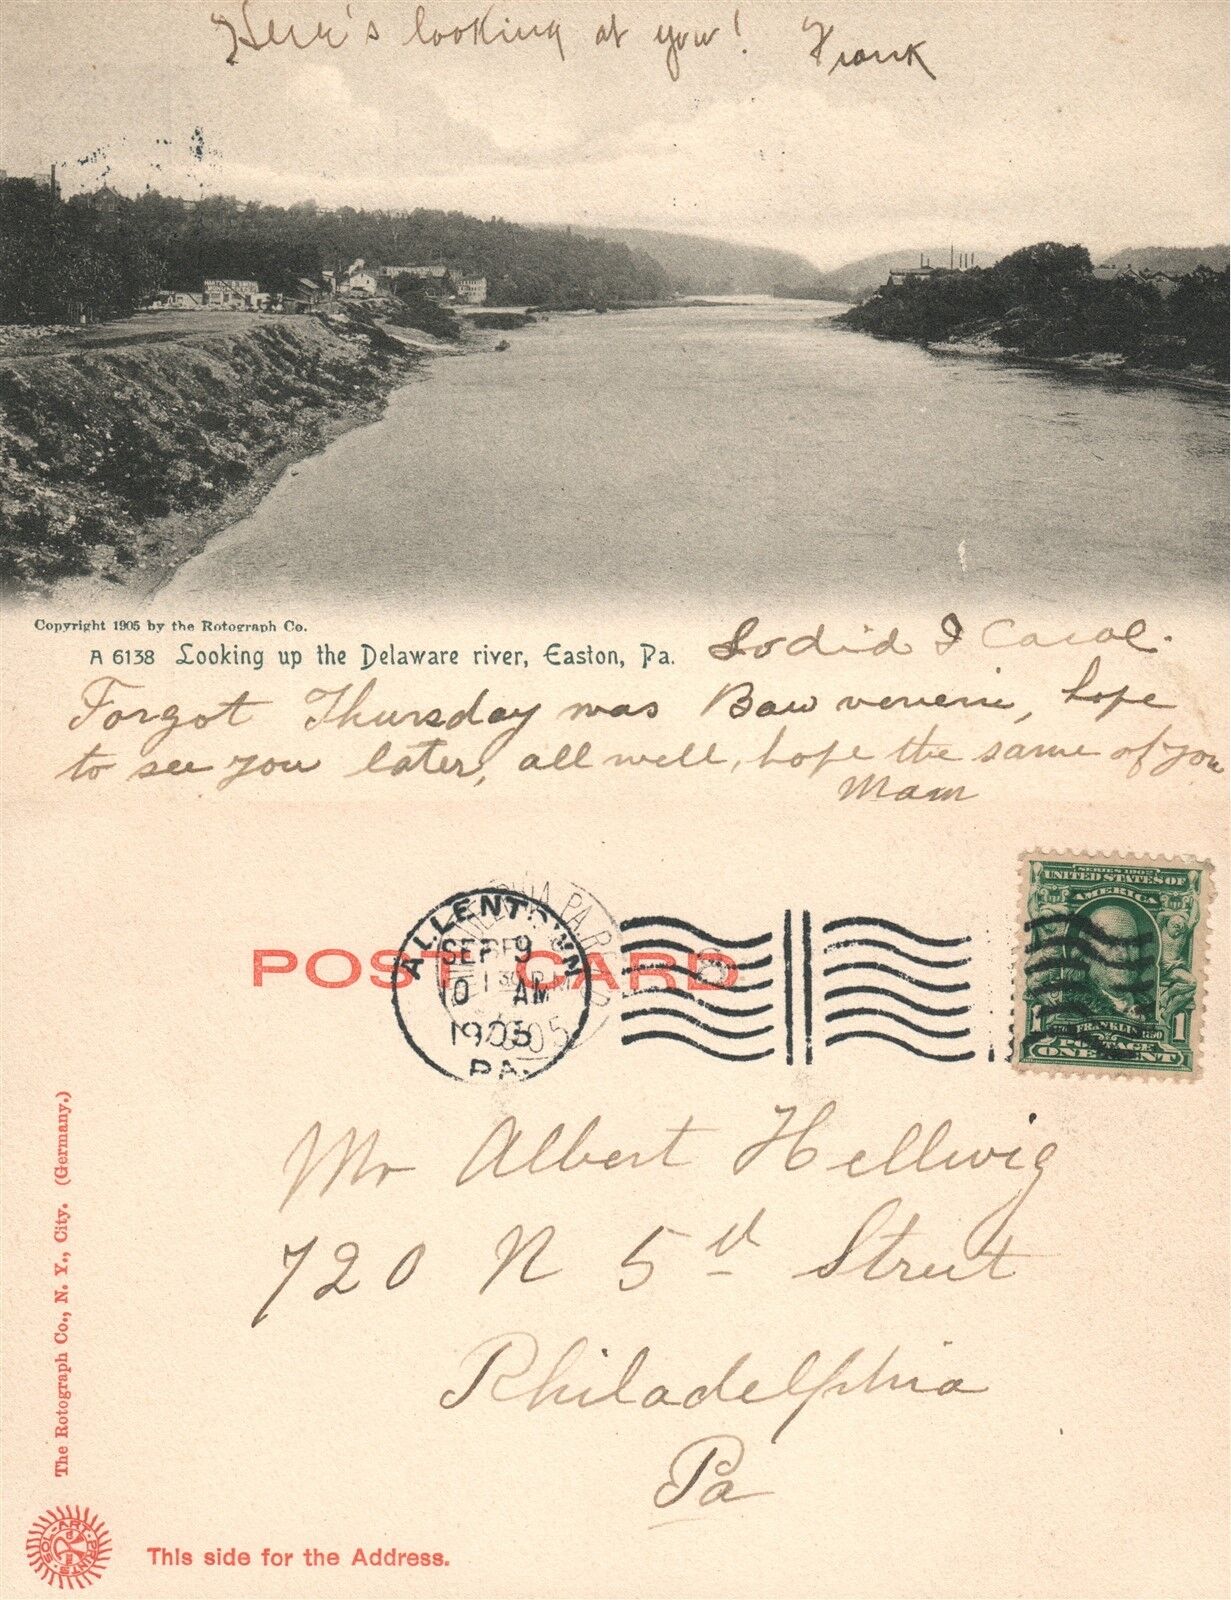 Here's looking at you! Frank
Copyright 1905 by the Rotograph Co.
A 6138 Looking up the Delaware river, Easton, Pa.
So did I Carol.
Forgot Thursday was, hope
to see you later, all well, hope the same of you
Mam
SERIES 1902
UNITED STATES OF
AMERICA
1 FRANKLIN 1
POSTAGE
ONE CENT
POST CARD
ALLENTOWN
SEP 9
10 AM
1905
PA.
Mr Albert Hellwig
720 N 5th Street
Philadelphia
Pa
The Rotograph Co., N. Y., City. (Germany.)
SOL-ART-PRINTS
This side for the Address.